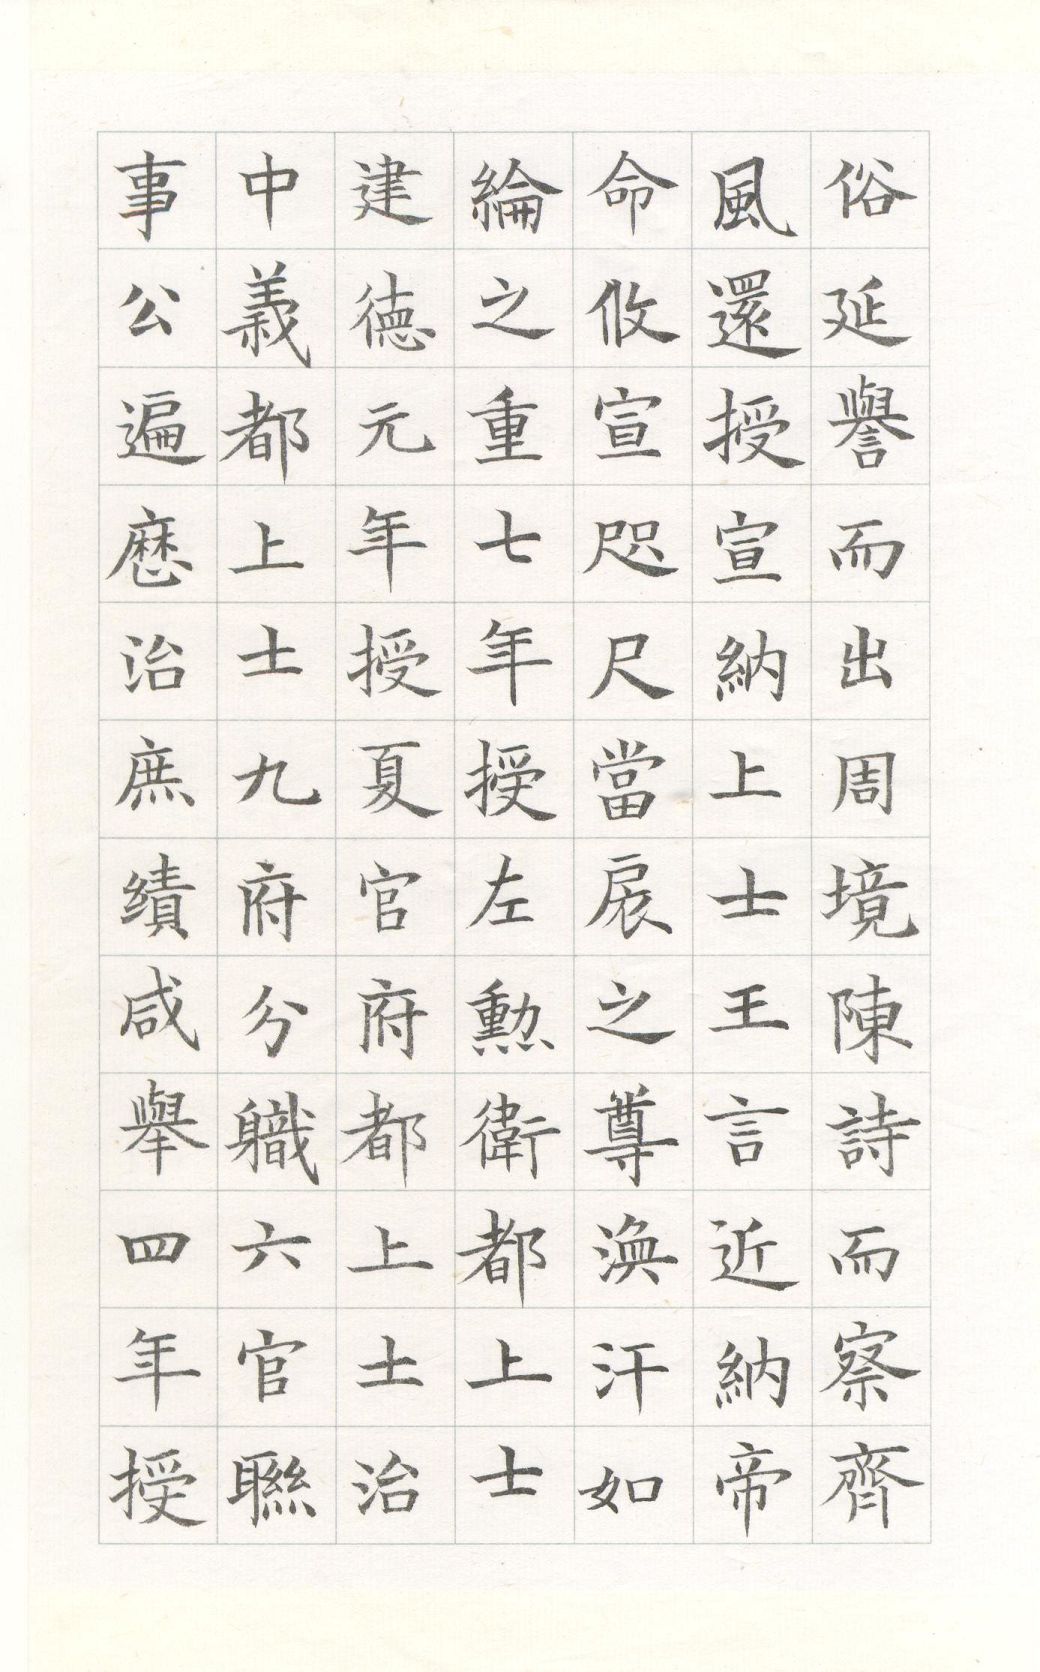 俗延譽而出周境陳詩而察齊
風還授宣納上士王言近納帝
命攸宣咫尺當扆之尊渙汗如
綸之重七年授左勳衛都上士
建德元年授夏官府都上士治
中義都上士九府分職六官聯
事公遍歷治庶績咸舉四年授